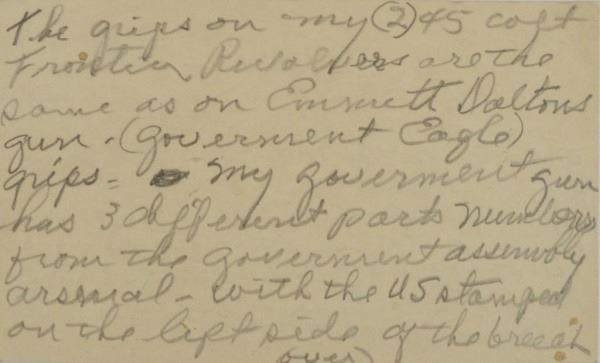 The grips on my (2) 45 colt
Frontier Revolvers are the
same as on Emmett Daltons
gun - (Goverment Eagle)
grips = My goverment gun
has 3 different parts numbers
from the goverment assembly
arsenal - with the US stamped
on the left side of the breech
over)